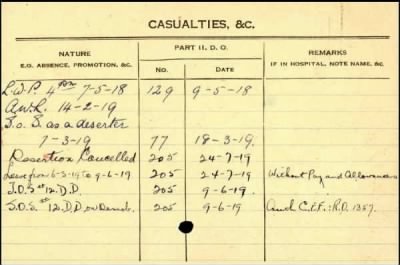 CASUALTIES, &C.
NATURE PART II, D. O. REMARKS
E.G. ABSENCE, PROMOTION, &C. NO. DATE IF IN HOSPITAL, NOTE NAME, &C.
L.W.P. 7-5-18 129 9-5-18
A.W.L. 14-2-19
S.o.S. as a deserter
1-3-19 77 18-3-19
Desertion Cancelled 205 24-7-19
Leave from 6-3-19 to 9-6-19 205 24-7-19 Without Pay and Allowances
T.O.S. 12.D.D. 205 9-6-19.
S.O.S. 12.D.D. on Demob. 205 9-6-19 Auth C.E.F.: R.O. 1357.